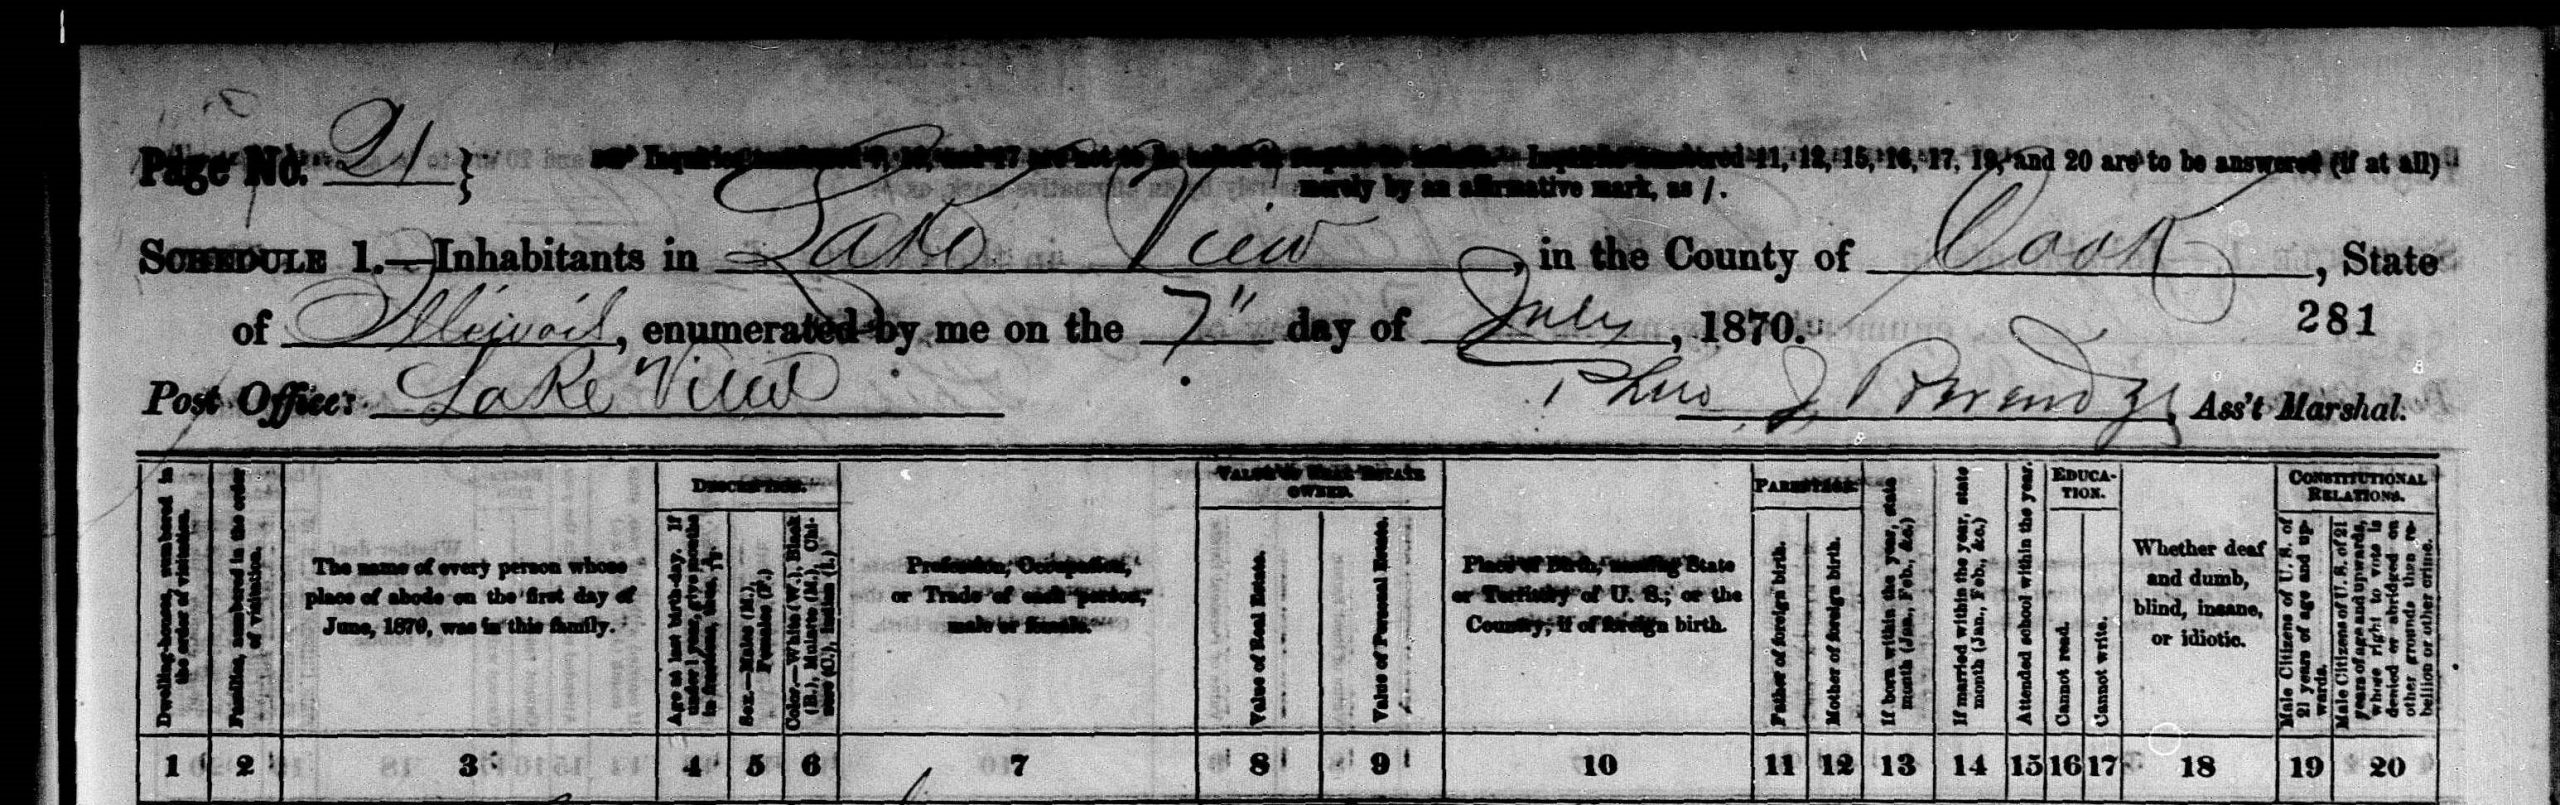 Page No. 21 } Inquiries numbered 7, 16, and 17 are not to be asked in respect to infants. Inquiries numbered 11, 12, 15, 16, 17, 19, and 20 are to be answered (if at all)
merely by an affirmative mark, as /.
SCHEDULE 1.—Inhabitants in Lake View, in the County of Cook, State
of Illinois, enumerated by me on the 7" day of July, 1870.
281
Post Office: Lake View
J Ass't Marshal.
Dwelling-houses, numbered in the order of visitation.
Families, numbered in the order of visitation.
The name of every person whose
place of abode on the first day of
June, 1870, was in this family.
DESCRIPTION.
Age at last birth-day. If under 1 year, give months in fractions, thus,
Sex.—Males (M.), Females (F.)
Color.—White (W.), Black (B.), Mulatto (M.), Chinese (C.), Indian (I.)
Profession, Occupation,
or Trade of each person,
male or female.
VALUE OF REAL ESTATE
OWNED.
Value of Real Estate.
Value of Personal Estate.
Place of Birth, naming State
or Territory of U. S.; or the
Country, if of foreign birth.
PARENTAGE.
Father of foreign birth.
Mother of foreign birth.
If born within the year, state month (Jan., Feb., &c.)
If married within the year, state month (Jan., Feb., &c.)
Attended school within the year.
EDUCA-
TION.
Cannot read.
Cannot write.
Whether deaf
and dumb,
blind, insane,
or idiotic.
CONSTITUTIONAL
RELATIONS.
Male Citizens of U. S. of 21 years of age and upwards.
Male Citizens of U. S. of 21 years of age and upwards, whose right to vote is denied or abridged on other grounds than rebellion or other crime.
1 2 3 4 5 6 7 8 9 10 11 12 13 14 15 16 17 18 19 20